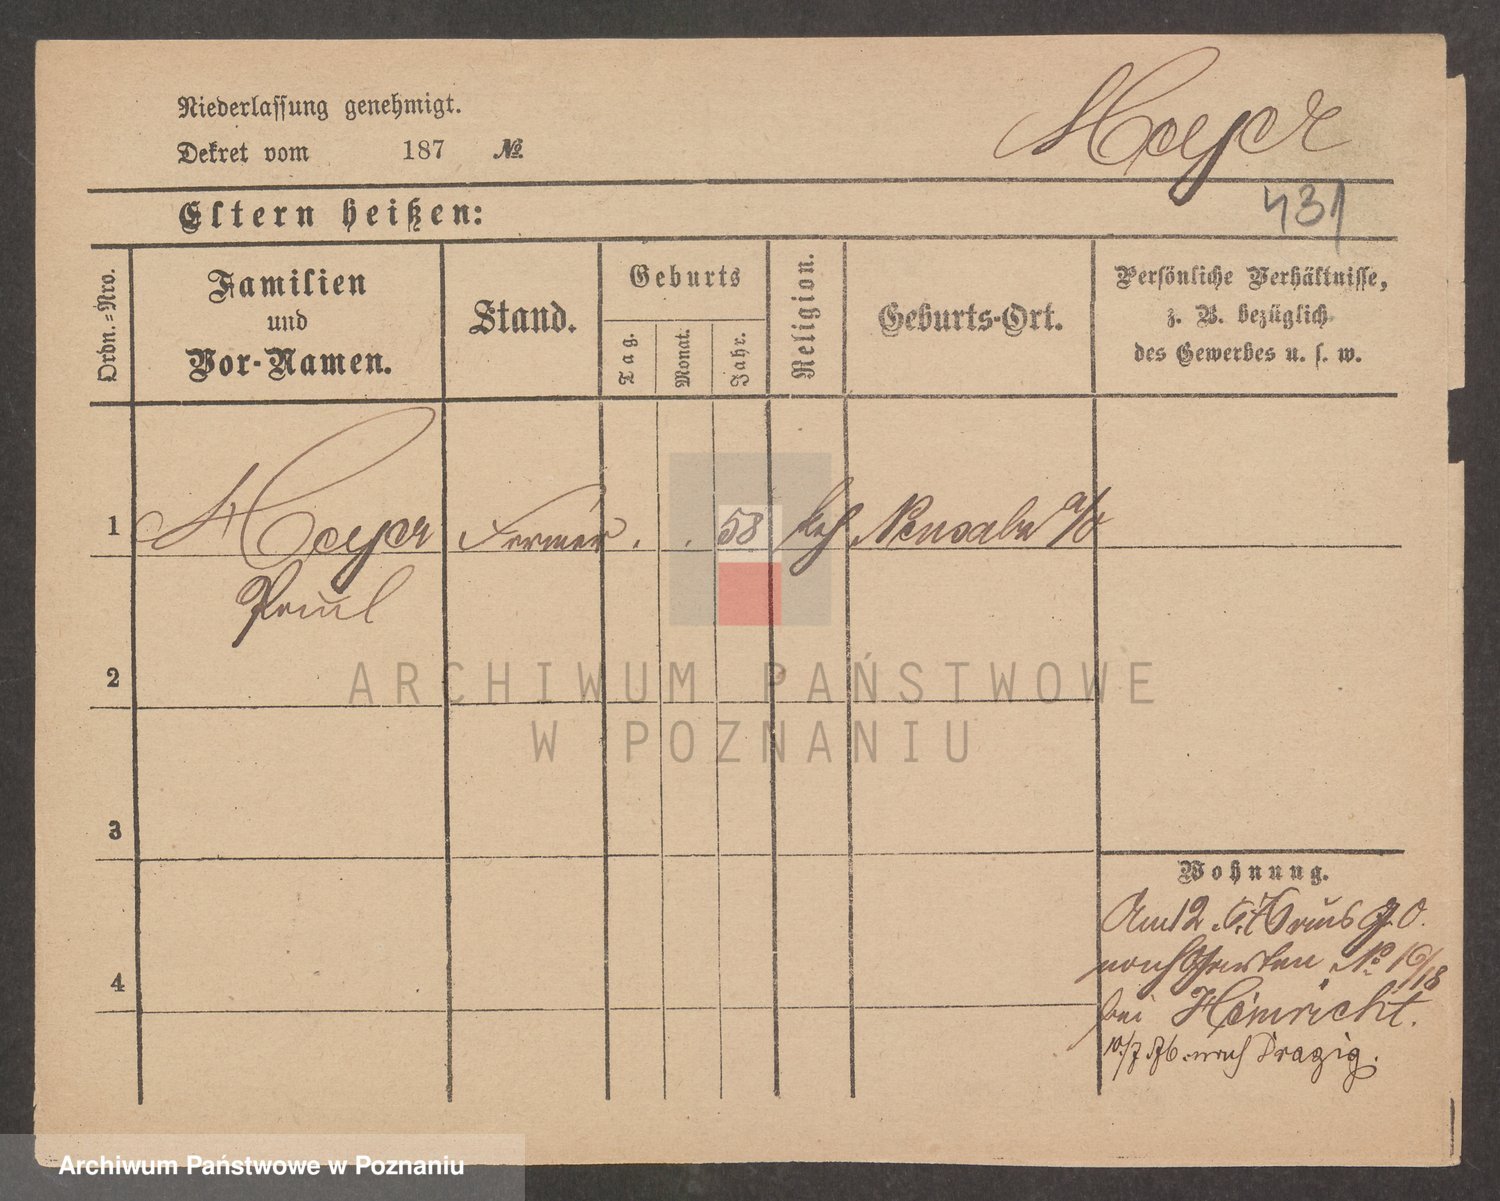 Niederlassung genehmigt.
Dekret vom 187 №
Meyer
431
Eltern heißen:
Ordn.=Nro.
Familien
und
Vor-Namen.
Stand.
Geburts
Tag.
Monat.
Jahr.
Religion.
Geburts-Ort.
Persönliche Verhältnisse,
z. B. bezüglich
des Gewerbes u. s. w.
1 Meyer 58
Paul
2
3
4
Wohnung.
Am 12
nach Garten № 19/18
bei Heinricht.
10/7 76 nach Drazig.
ARCHIWUM PAŃSTWOWE
W POZNANIU
Archiwum Państwowe w Poznaniu